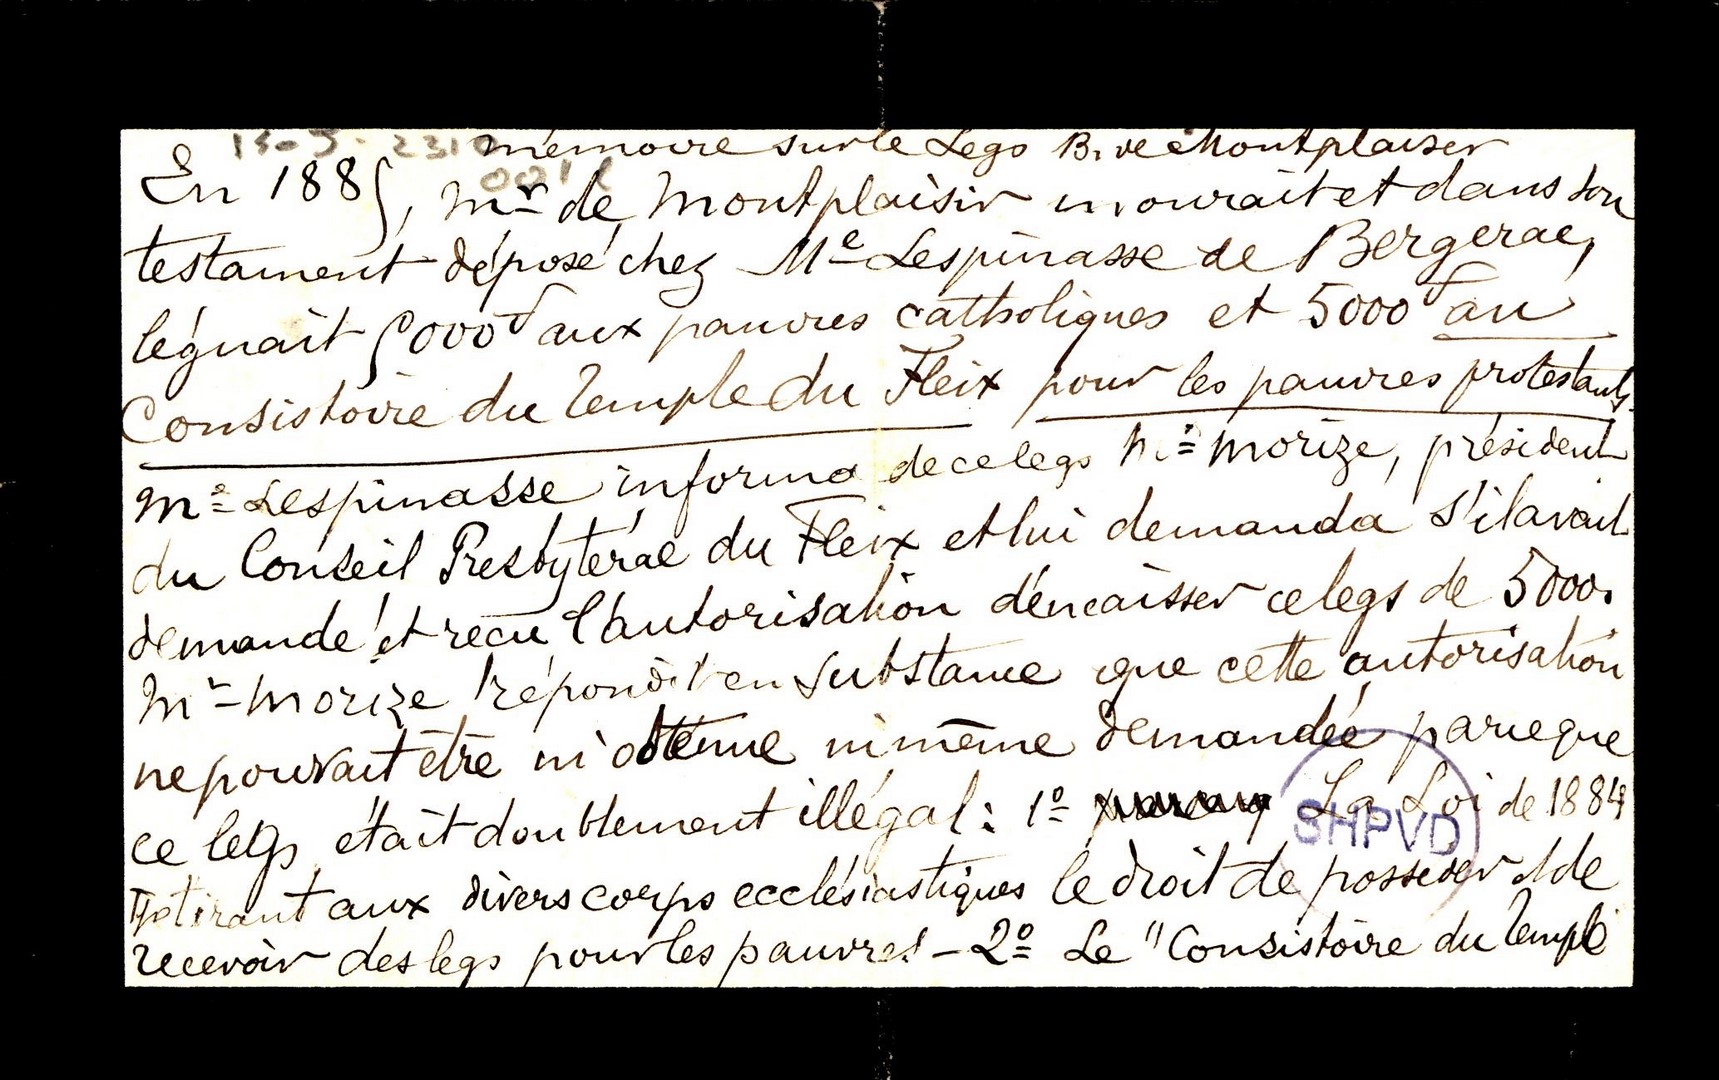 13-5-2310
mémoire sur le Legs B. de Montplaisir
En 1885, Mr de Montplaisir mourait et dans son
testament déposé chez Me Lespinasse de Bergerac,
léguait 5000f aux pauvres catholiques et 5000f au
Consistoire du Temple du Fleix pour les pauvres protestants.
Me Lespinasse informa de ce legs Mr Morize, président
du Conseil Presbytéral du Fleix et lui demanda s'il avait
demandé et reçu l'autorisation d'encaisser ce legs de 5000.
Mr Morize répondit en substance que cette autorisation
ne pouvait être ni obtenue ni même demandée parceque
ce legs était doublement illégal : 1o La Loi de 1884
retirant aux divers corps ecclésiastiques le droit de posséder et de
recevoir des legs pour les pauvres - 2o Le "Consistoire du Temple
SHPVD